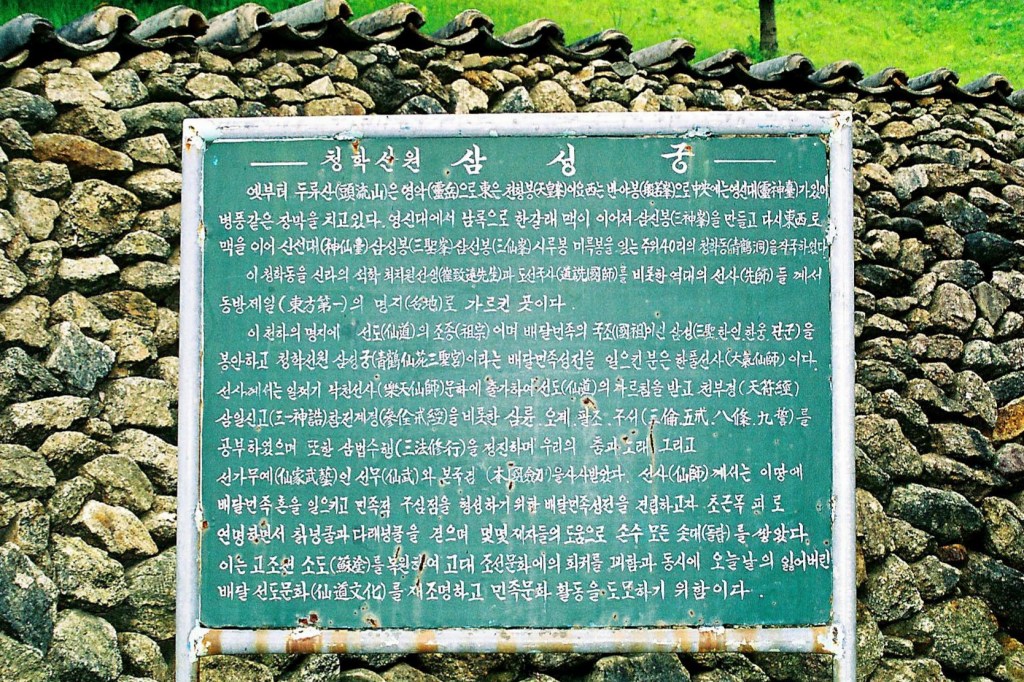 청학선원 삼성궁
옛부터 두류산(頭流山)은 영악(靈岳)으로 東은 천왕봉(天皇峯)이요 西는 반야봉(般若峯)으로 中央에는 영신대(靈神臺)가 있어
병풍같은 장막을 치고있다. 영신대에서 남록으로 한갈래 맥이 이어져 삼신봉(三神峯)을 만들고 다시 東西로
맥을 이어 신선대(神仙臺) 삼성봉(三聖峯) 삼선봉(三仙峯) 시루봉 미륵봉을 잇는 주위40리의 청학동(靑鶴洞)을
이 청학동을 신라의 석학 최치원선생(崔致遠先生)과 도선국사(道詵國師)를 비롯한 역대의 선사(先師)들께서
동방제일(東方第一)의 명지(名地)로 가르킨 곳이다
이 천하의 명지에 선도(仙道)의 조종(祖宗)이며 배달민족의 국조(國祖)이신 삼성(三聖 한인 한웅 단군)을
봉안하고 청학선원 삼성궁(靑鶴仙苑三聖宮)이라는 배달민족성전을 일으킨 분은 한풀선사(大氣仙師)이다.
선사께서는 일찍기 락천선사(樂天仙師)문하에 출가하여 선도(仙道)의 가르침을 받고 천부경(天符經)
삼일신고(三一神誥)참전계경(參佺戒經)을 비롯한 삼륜.오계.팔조.구서(三倫.五戒.八條.九誓)를
공부하였으며 또한 삼법수행(三法修行)을 정진하며 우리의 춤과 노래 그리고
선가무예(仙家武藝)인 선무(仙武)와 본국검 을사사받았다. 선사(仙師)께서는 이땅에
배달민족혼을 일으키고 민족적 구심점을 형성하기 위한 배달민족성전을 건립하고자 초근목피로
연명하면서 칡넝쿨과 다래넝쿨을 걷으며 몇몇 제자들의 도움으로 손수 모든 솟대(돌탑)를 쌓았다.
이는 고조선 소도(蘇塗)를 복원하여 고대 조선문화에의 회귀를 꾀함과 동시에 오늘날의 잃어버린
배달 선도문화(仙道文化)를 재조명하고 민족문화 활동을 도모하기 위함이다.